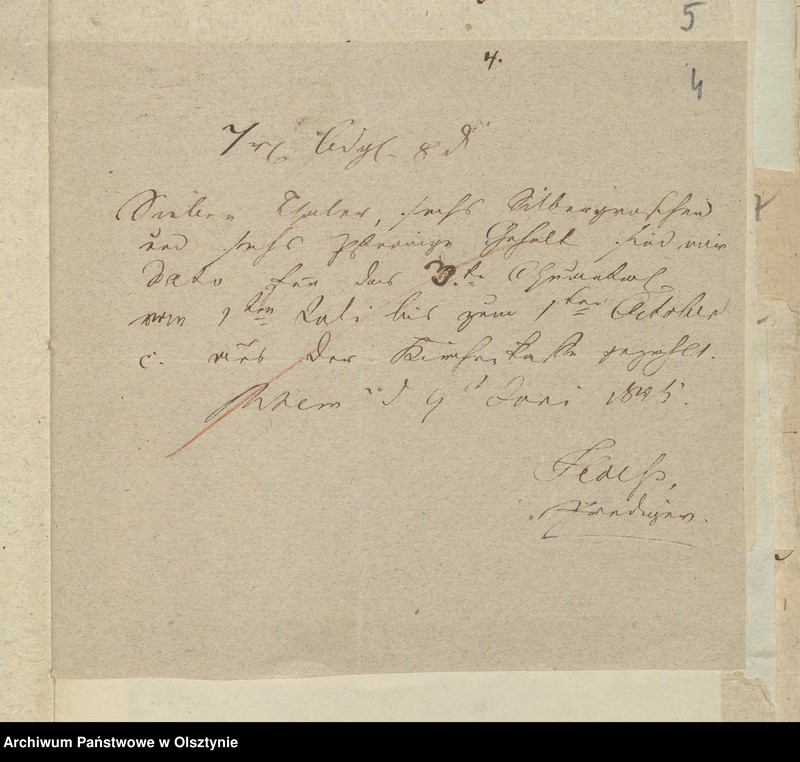 5
4.
4
7 rl. 6 Sgl. 8 d
Sieben Thaler, sechs Silbergroschen
und sechs Pfennige Gehalt sind mir
dato für das 3.te Quartal
vom 1ten Juli bis zum 1ten October
c. aus der Kirchenkasse gezahlt.
d 9t Juni 1845.
Prediger.
Archiwum Państwowe w Olsztynie